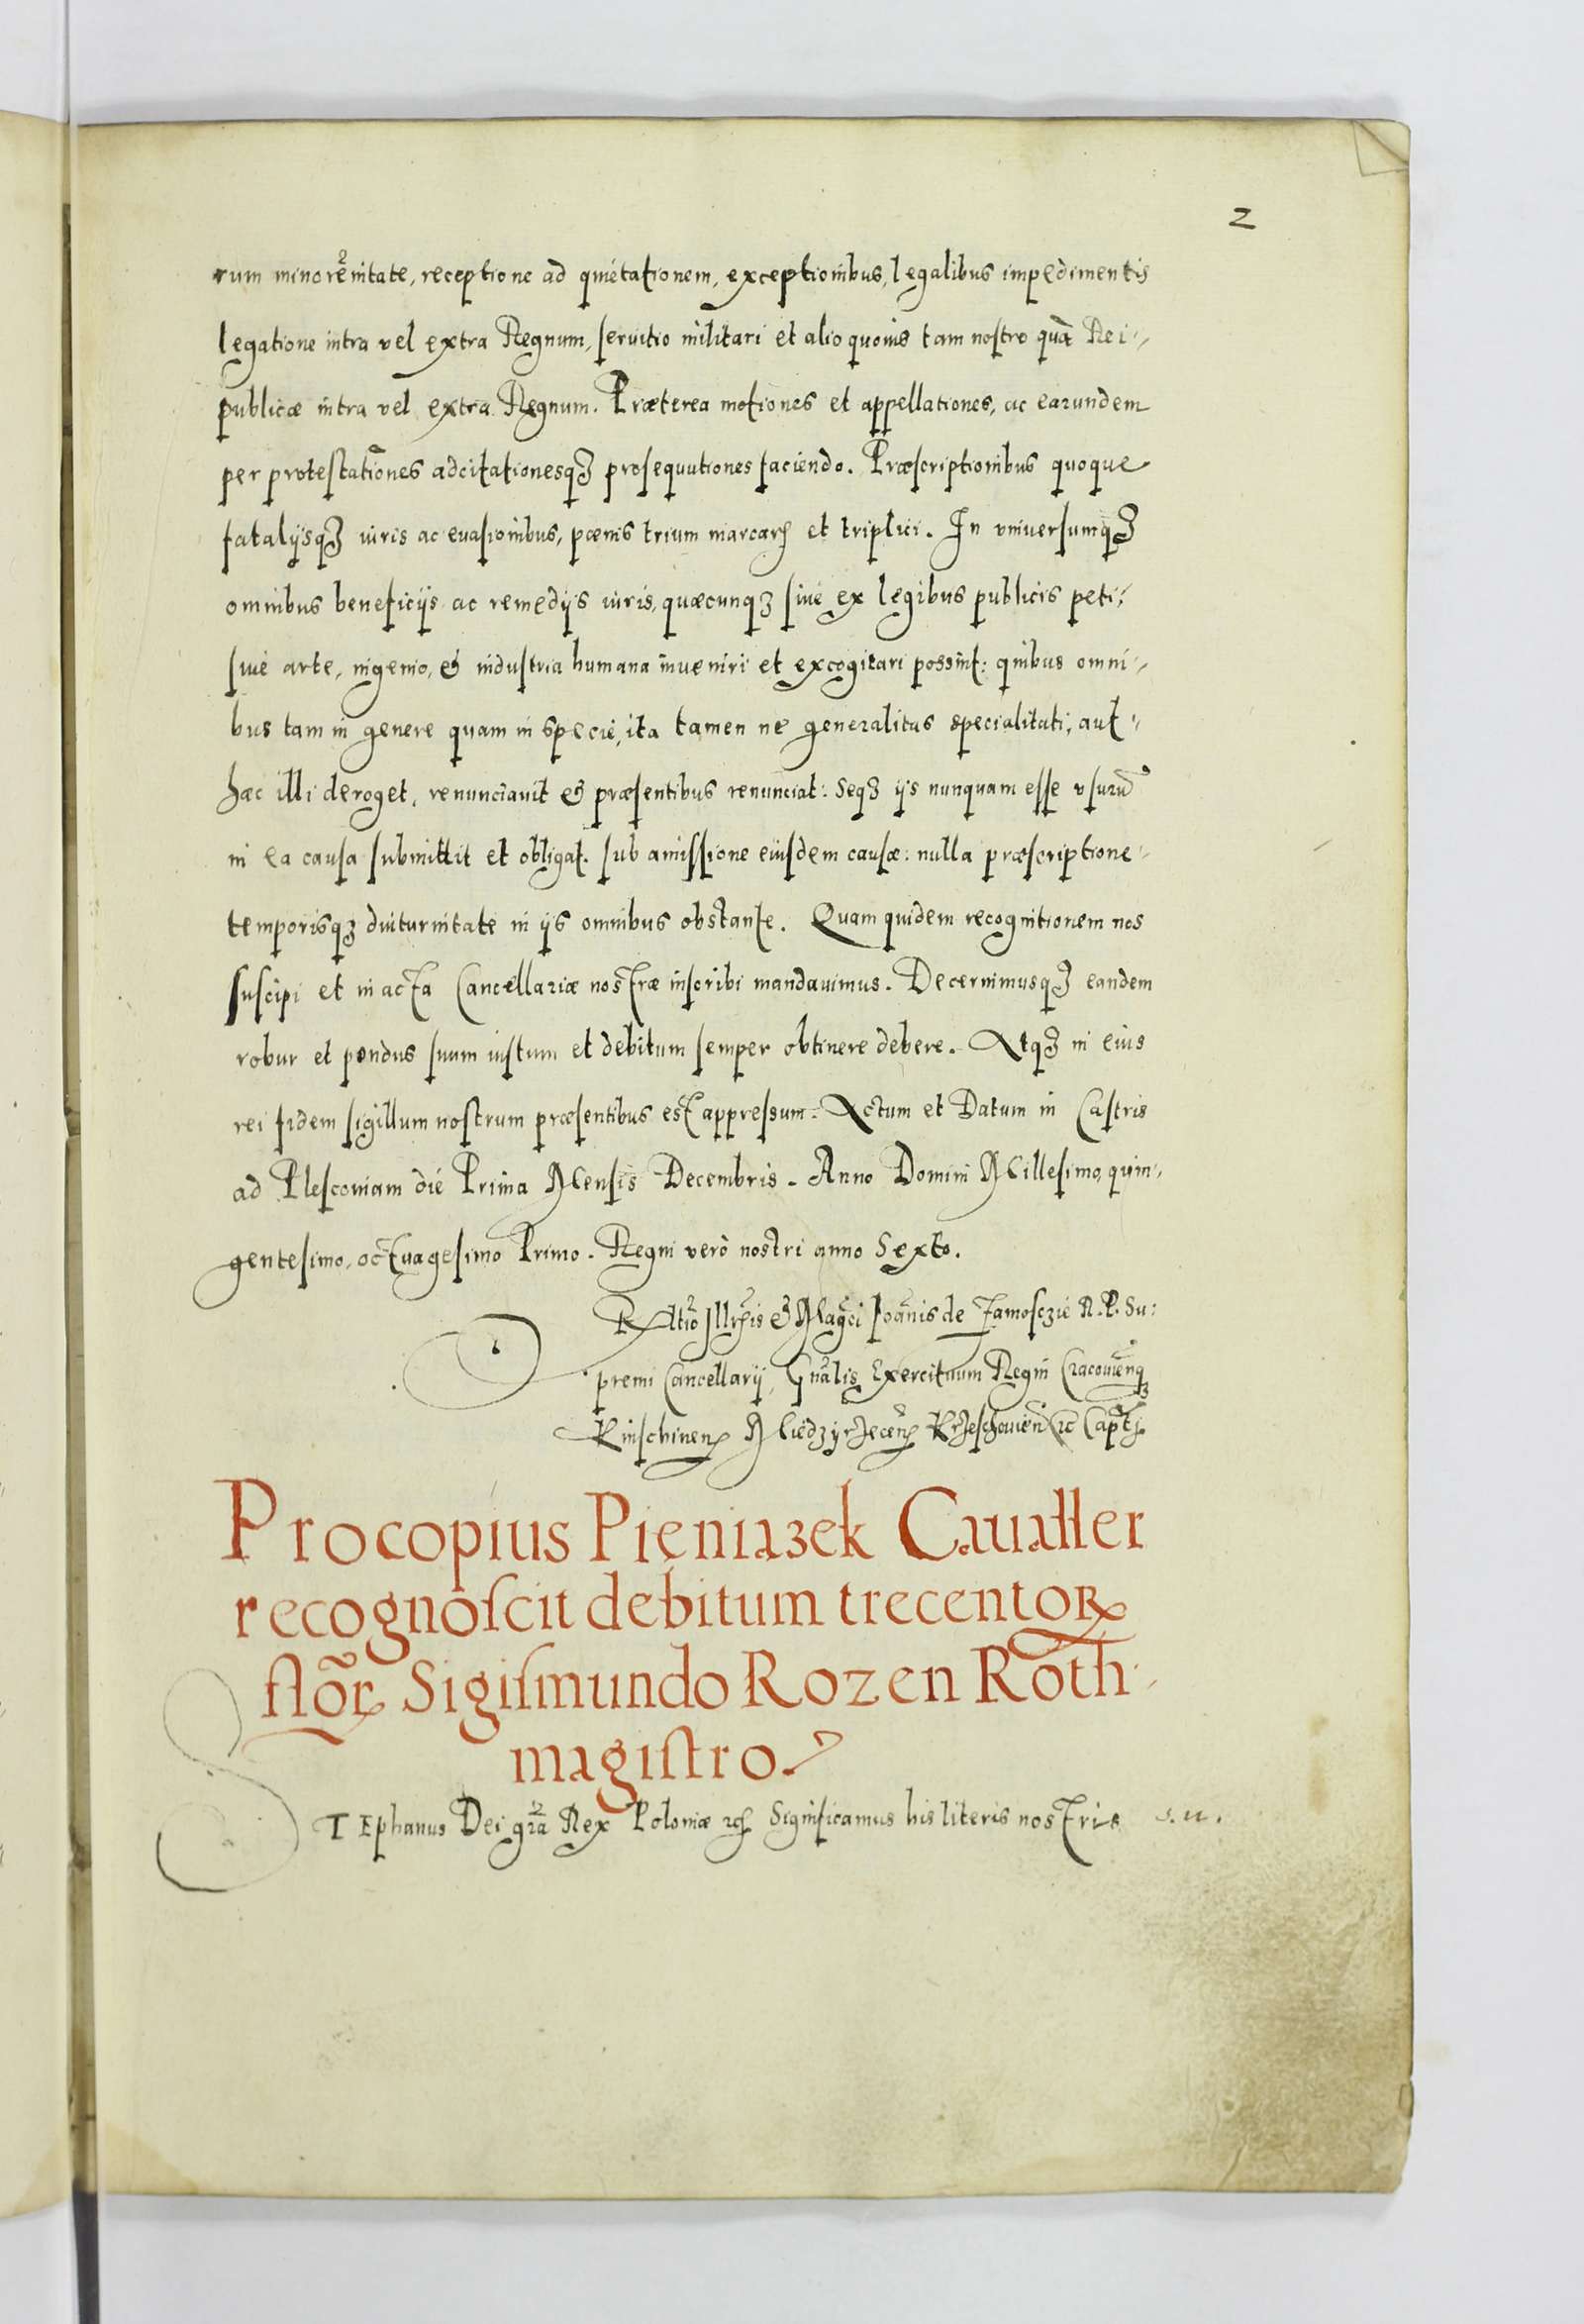 2
rum minorẽnitate, receptione ad quietationem, exceptionibus, legalibus impedimentis
legatione intra vel extra Regnum, seruitio militari et alio quouis tam nostro quā Rei-
publicæ intra vel extra Regnum. Præterea motiones et appellationes, ac earundem
per protestationes adcitationesqꝫ prosequutiones faciendo. Præscriptionibus quoque
fatalijsqꝫ iuris ac euasionibus, pœnis trium marcarꝝ et triplici. In vniuersumqꝫ
omnibus beneficijs ac remedijs iuris, quæcunqꝫ siue ex legibus publicis peti,
siue arte, ingenio, & industria humana inueniri et excogitari possint: quibus omni-
bus tam in genere quam in specie, ita tamen ne generalitas specialitati, aut
hæc illi deroget, renunciauit & præsentibus renunciat: Seqꝫ ijs nunquam esse vsurū
in ea causa submittit et obligat. sub amissione eiusdem causæ: nulla præscriptione
temporisqꝫ diuturnitate in ijs omnibus obstante. Quam quidem recognitionem nos
suscipi et in acta Cancellariæ nostræ inscribi mandauimus. Decernimusqꝫ eandem
robur et pondus suum iustum et debitum semper obtinere debere. Atqꝫ in eius
rei fidem sigillum nostrum præsentibus est appressum. Actum et Datum in Castris
ad Plescouiam die Prima Mensis Decembris. Anno Domini Millesimo, quin-
gentesimo, octuagesimo Primo. Regni verò nostri anno Sexto.
Rłtio Illrꝭis & Magci Joānis de Zamosczie R. P. Su:
premi Cancellarij, Gnālis Exercituum Regni Cracouienꝗ
Kinschinenꝭ Miedzyrzecenꝭ Krzeschouieñ ꝛc Capti
Procopius Pieniazek Caualler
recognoscit debitum trecentorꝝ
flōrꝝ Sigismundo Rozen Roth
magistro.
STEphanus Dei grā Rex Poloniæ ꝛc Significamus his literis nostris v. u.